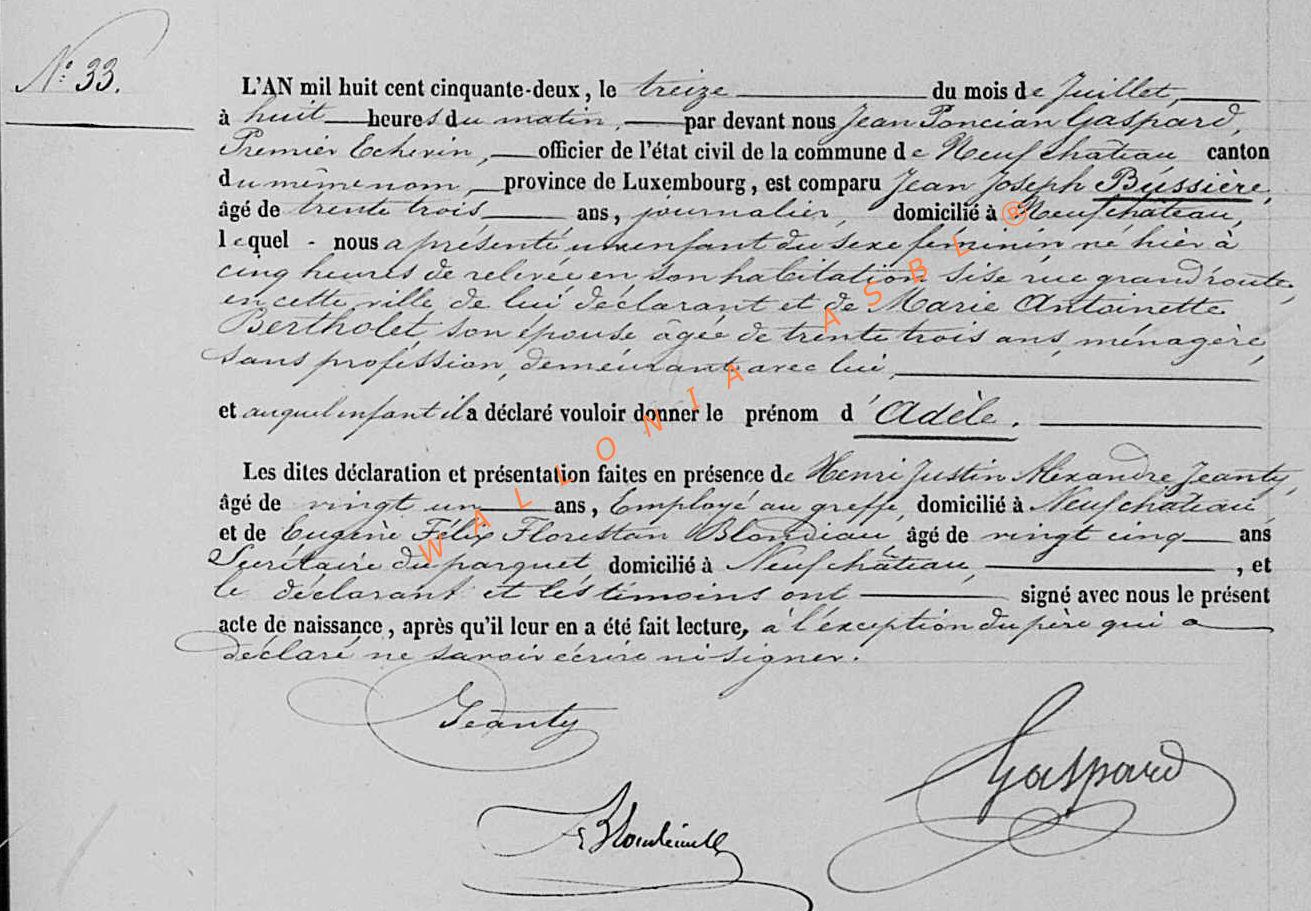 N.° 33.
L'AN mil huit cent cinquante-deux, le treize du mois de Juillet,
à huit heures du matin, par devant nous Jean Poncian Gaspard,
Premier Echevin, officier de l'état civil de la commune de Neufchâteau canton
du même nom, province de Luxembourg, est comparu Jean Joseph Bussière,
âgé de trente trois ans, journalier, domicilié à Neufchâteau,
lequel - nous a présenté un enfant du sexe féminin né hier à
cinq heures de relevée en son habitation sise rue grand'route,
en cette ville de lui déclarant et de Marie Antoinette
Bertholet son épouse âgée de trente trois ans, ménagère,
sans profession, demeurant avec lui,
et auquel enfant il a déclaré vouloir donner le prénom d'Adèle.
Les dites déclaration et présentation faites en présence de Henri Justin Alexandre Jeanty,
âgé de vingt un ans, Employé au greffe, domicilié à Neufchâteau
et de Eugène Félix Florestan Blondiau, âgé de vingt cinq ans
Secrétaire du parquet domicilié à Neufchâteau, , et
le déclarant et les témoins ont signé avec nous le présent
acte de naissance, après qu'il leur en a été fait lecture, à l'exception du père qui a
déclaré ne savoir écrire ni signer.
Jeanty
Gaspard
WALLONIA ASBL ®